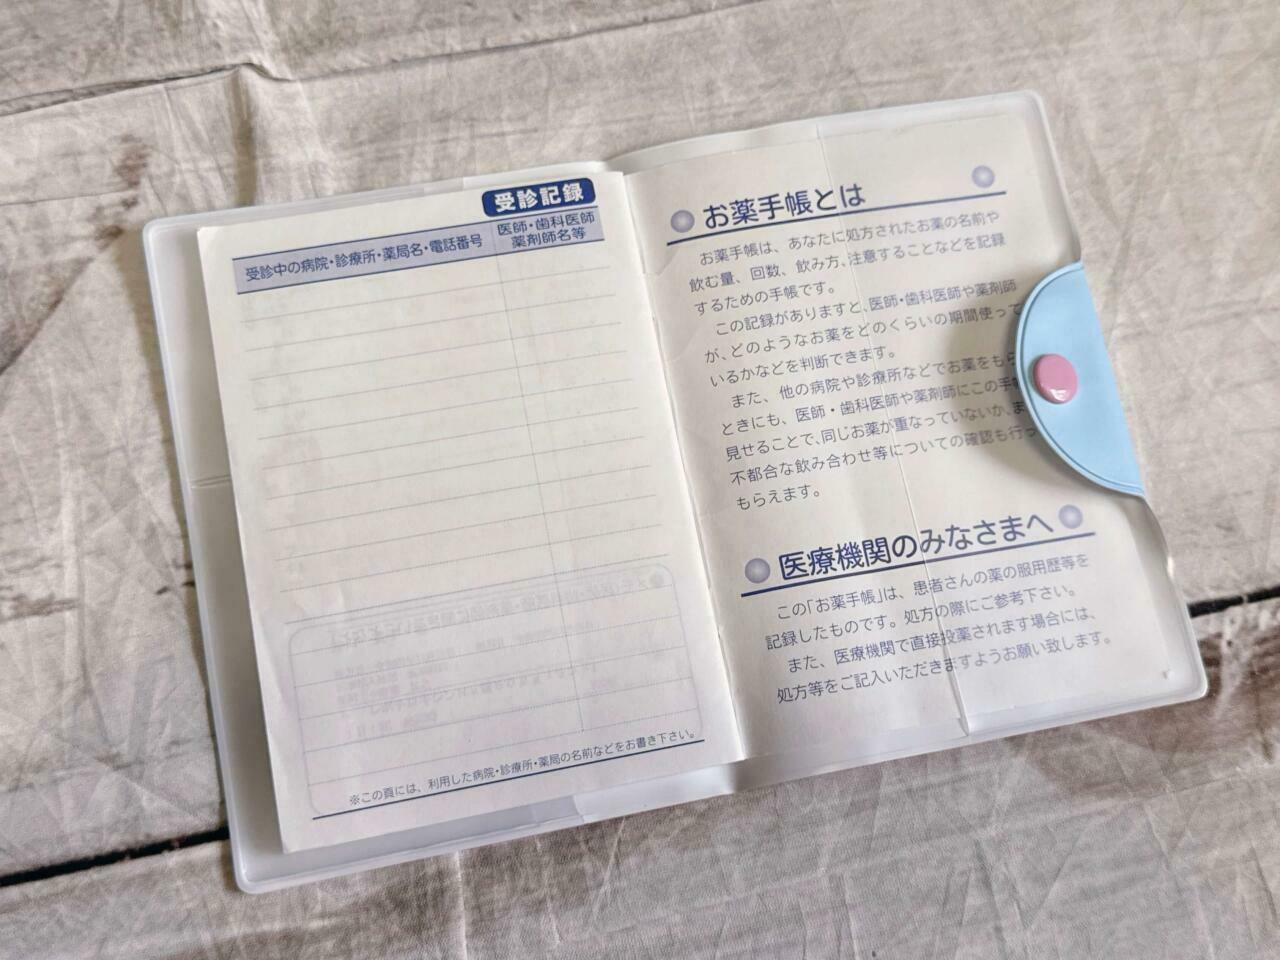 受診記録
受診中の病院・診療所・薬局名・電話番号
医師・歯科医師
薬剤師名等
※この頁には、利用した病院・診療所・薬局の名前などをお書き下さい。
お薬手帳とは
お薬手帳は、あなたに処方されたお薬の名前や
飲む量、回数、飲み方、注意することなどを記録
するための手帳です。
この記録がありますと、医師・歯科医師や薬剤師
が、どのようなお薬をどのくらいの期間使って
いるかなどを判断できます。
また、他の病院や診療所などでお薬をもら
ときにも、医師・歯科医師や薬剤師にこの手
見せることで、同じお薬が重なっていないか、ま
不都合な飲み合わせ等についての確認も行っ
もらえます。
医療機関のみなさまへ
この「お薬手帳」は、患者さんの薬の服用歴等を
記録したものです。処方の際にご参考下さい。
また、医療機関で直接投薬されます場合には、
処方等をご記入いただきますようお願い致します。